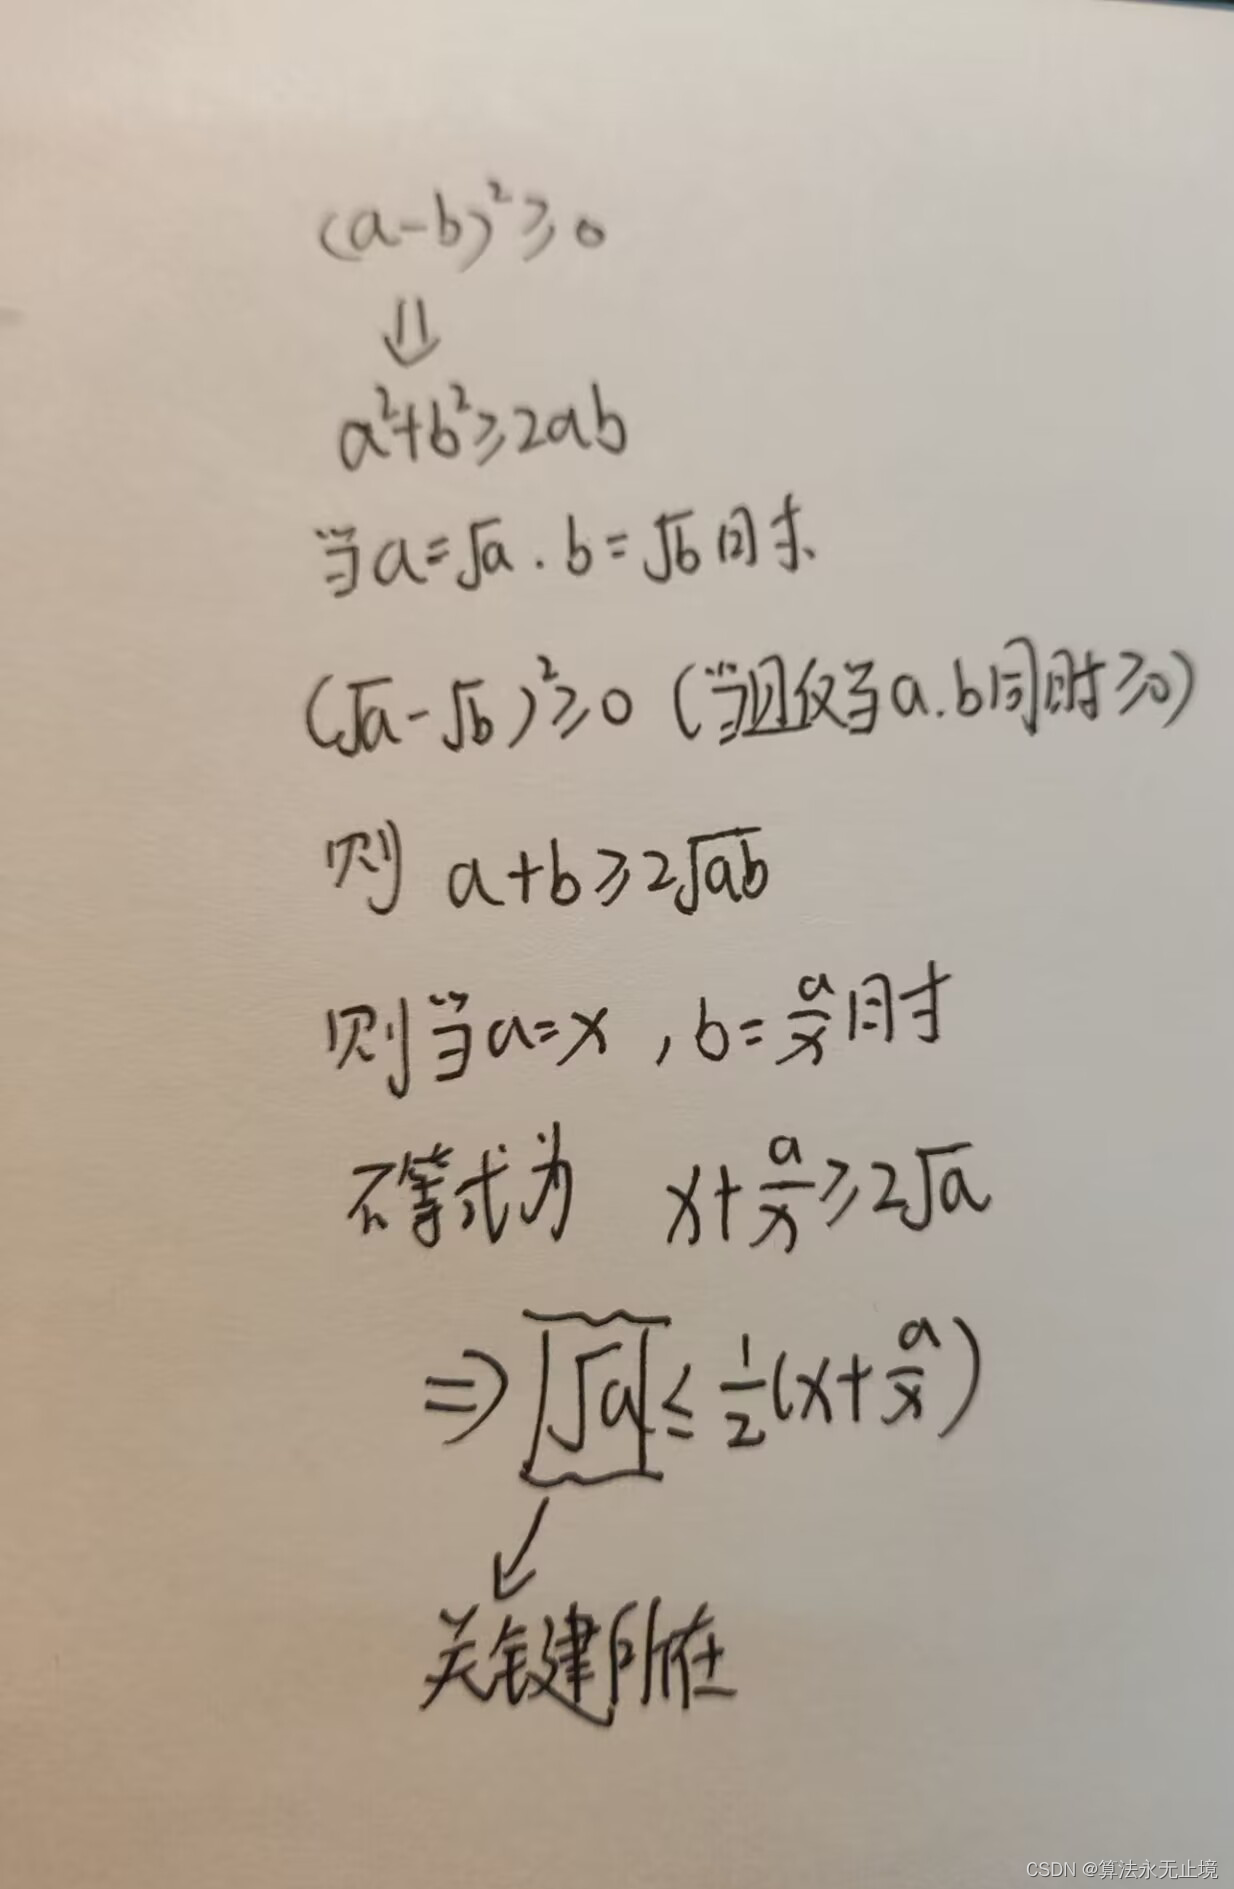 (a-b)²≥0
⇓
a²+b²≥2ab
当a=√a.b=√b时
(√a-√b)²≥0(当且仅当a.b同时≥0)
则 a+b≥2√ab
则当a=x,b=a/x时
不等式为 x+a/x≥2√a
⇒√a≤1/2(x+a/x)
关键所在
CSDN @算法永无止境